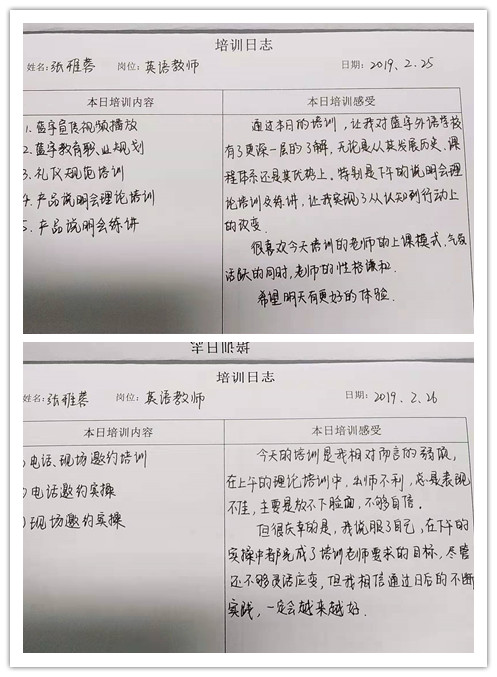 培训日志
姓名:张雅蓉 岗位:英语教师 日期:2019.2.25
本日培训内容
1.蓝宇宣传视频播放
2.蓝宇教育职业规划
3.礼仪规范培训
4.产品说明会理论培训
5.产品说明会练讲
本日培训感受
通过本日的培训,让我对蓝宇外语学校
有了更深一层的了解,无论是从其发展历史、课
程体系还是其优格上。特别是下午的说明会理
论培训及练讲,让我实现了从认知到行动上
的改变.
很喜欢今天培训的老师的上课模式,气氛
活跃的同时,老师的性格谦和.
希望明天有更好的体验.
培训日志
姓名:张雅蓉 岗位:英语教师 日期:2019.2.26
本日培训内容
)电话、现场邀约培训
)电话邀约实操
)现场邀约实操
本日培训感受
今天的培训是我相对而言的弱项,
在上午的理论培训中,出师不利,总是表现
不佳,主要是放不下脸面,不够自信。
但很庆幸的是,我说服了自己,在下午的
实操中都完成了培训老师要求的目标,尽管
还不够灵活应变,但我相信通过日后的不断
实践,一定会越来越好.